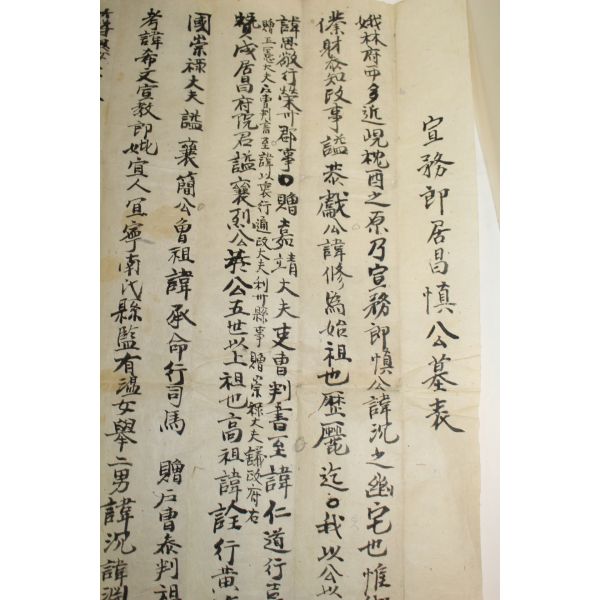 宣務郎居昌愼公墓表
娥林府西多近峴枕酉之原乃宣務郎愼公諱沉之幽宅也惟
僕射參知政事謚恭獻公諱修爲始祖也歷麗迄我以公以
諱思敬行榮州郡事贈嘉靖大夫吏曹判書至諱仁道行
贈正憲大夫戶曹判書至諱以衷行通政大夫利川縣事贈崇祿大夫議政府右
贊成居昌府院君謚襄烈公於公五世以上祖也高祖諱詮行黃
國崇祿大夫謚襄簡公曾祖諱承命行司馬 贈戶曹參判祖
考諱希文宣敎郎妣宜人宜寧南氏縣監有溫女擧二男諱沉諱淵